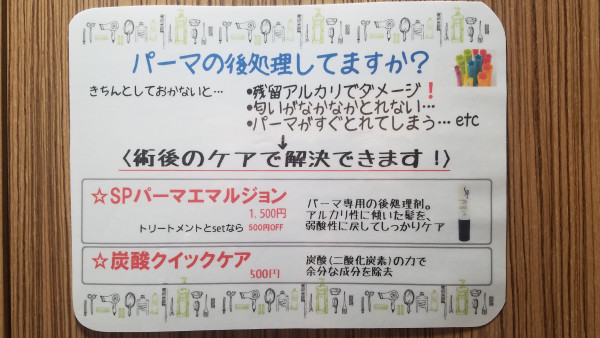 パーマの後処理してますか？
きちんとしておかないと…
•残留アルカリでダメージ❗
•匂いがなかなかとれない…
•パーマがすぐとれてしまう… etc
↓
〈術後のケアで解決できます！〉
☆SPパーマエマルジョン
1,500円
トリートメントとsetなら 500円OFF
パーマ専用の後処理剤。
アルカリ性に傾いた髪を、
弱酸性に戻してしっかりケア
☆炭酸クイックケア
500円
炭酸(二酸化炭素)の力で
余分な成分を除去